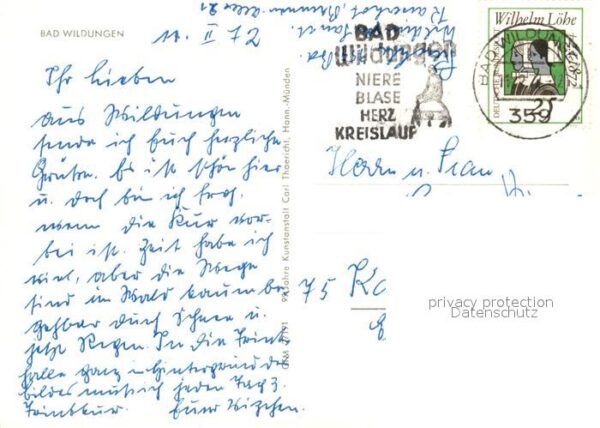 BAD WILDUNGEN
11. II 72
Ihr Lieben
aus Wildungen
sende ich Euch herzliche
Grüße. Es ist schön hier
u. doch bin ich froh,
wenn die Kur vor-
bei ist. Zeit habe ich
viel, aber die Wege
sind im Wald kaum be
gehbar durch Schnee u.
jetzt Regen. In die Trink
halle ganz im Hintergrund des
Bildes muß ich jeden Tag z.
Trinkkur. Eure
90 Jahre Kunstanstalt Carl Thoericht, Hann.-Münden
BAD
Wildungen
NIERE
BLASE
HERZ
KREISLAUF
Wilhelm Löhe
1872
DEUTSCHE BUNDESPOST
25
BAD WILDUNGEN
359
Herrn u. Frau
75 Ka
privacy protection
Datenschutz